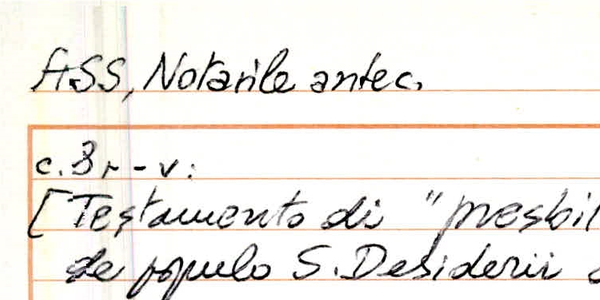 ASS, Notarile antec.
c. 3r-v:
[Testamento di "presbit
de populo S. Desiderii